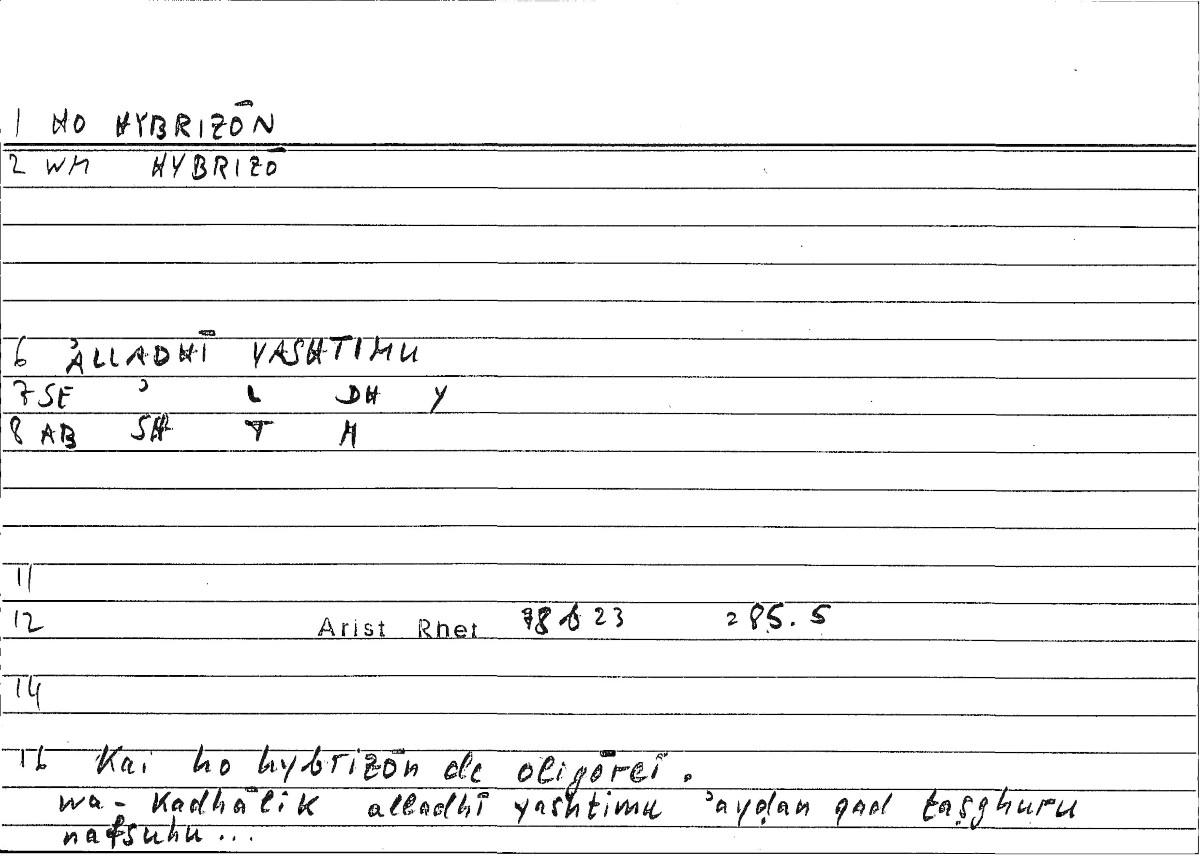 1 HO HYBRIZŌN
2 WM HYBRIZŌ
6 ʾALLADHĪ YASHTIMU
7 SE ʾ L DH Y
8 AB SH T M
11
12 Arist Rhet 78 b 23 285.5
14
16 Kai ho hybrizōn de oligōrei.
wa-kadhālik alladhī yashtimu ʾayḍan qad taṣghuru
nafsuhu...